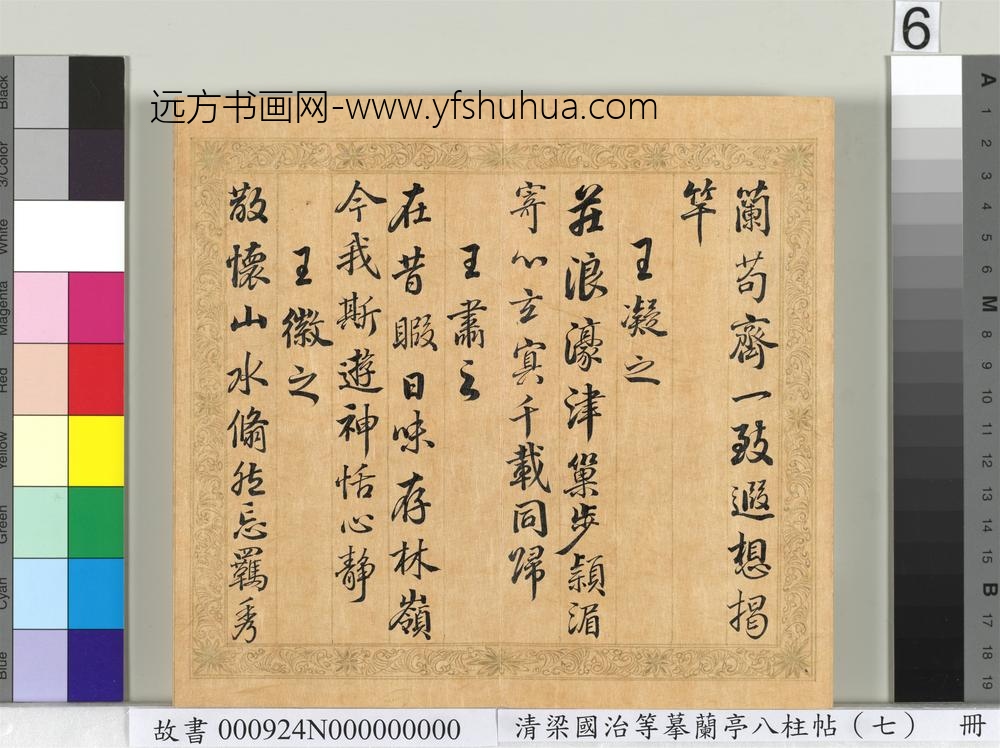 6
远方书画网-www.yfshuhua.com
蘭苟齊一致遐想揭
竿
王凝之
莊浪濠津巢步潁湄
寄心玄冥千載同歸
王肅之
在昔暇日味存林嶺
今我斯遊神恬心静
王徽之
散懷山水翛然忘羈秀
故書 000924N000000000
清梁國治等摹蘭亭八柱帖（七） 冊
Black
3/Color
White
Magenta
Red
Yellow
Green
Cyan
Blue
A
1
2
3
4
5
6
M
8
9
10
11
12
13
14
15
B
17
18
19